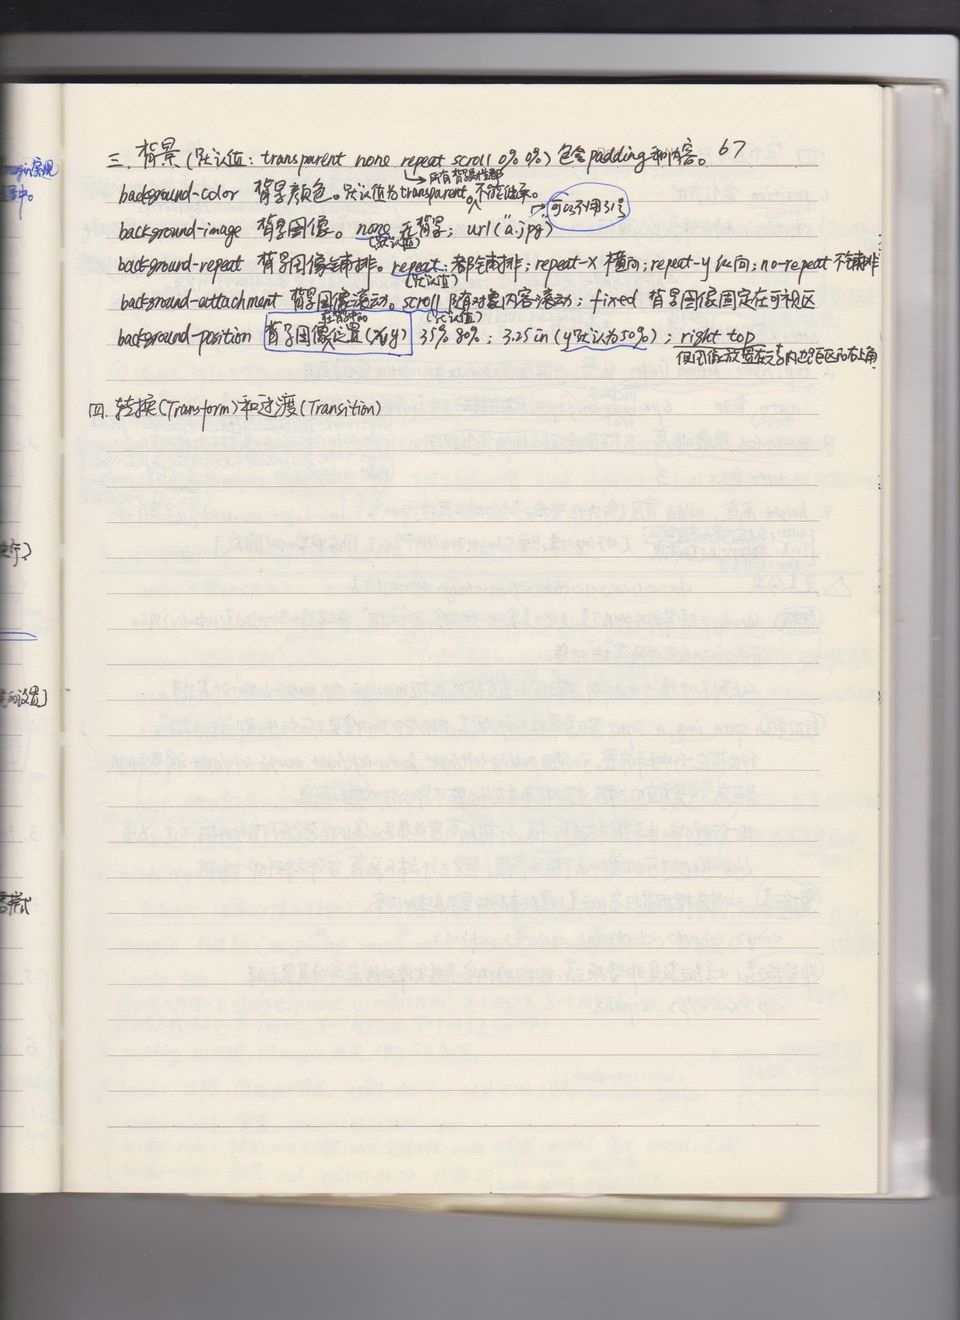 三. 背景(默认值: transparent none repeat scroll 0% 0%) 包含padding和内容。 67
所有背景属性都
background-color 背景颜色。默认值为transparent。不能继承。
可以不用引号
background-image 背景图像。none 无背景; url("a.jpg")
(默认值)
background-repeat 背景图像铺排。repeat: 都铺排; repeat-x 横向; repeat-y 纵向; no-repeat 不铺排
(默认值)
background-attachment 背景图像滚动。scroll 随对象内容滚动; fixed 背景图像固定在可视区
(默认值)
background-position 背景图像位置(x,y) 35% 80%; 3.25in (y默认为50%); right top
四. 转换(Transform)和过渡(Transition)